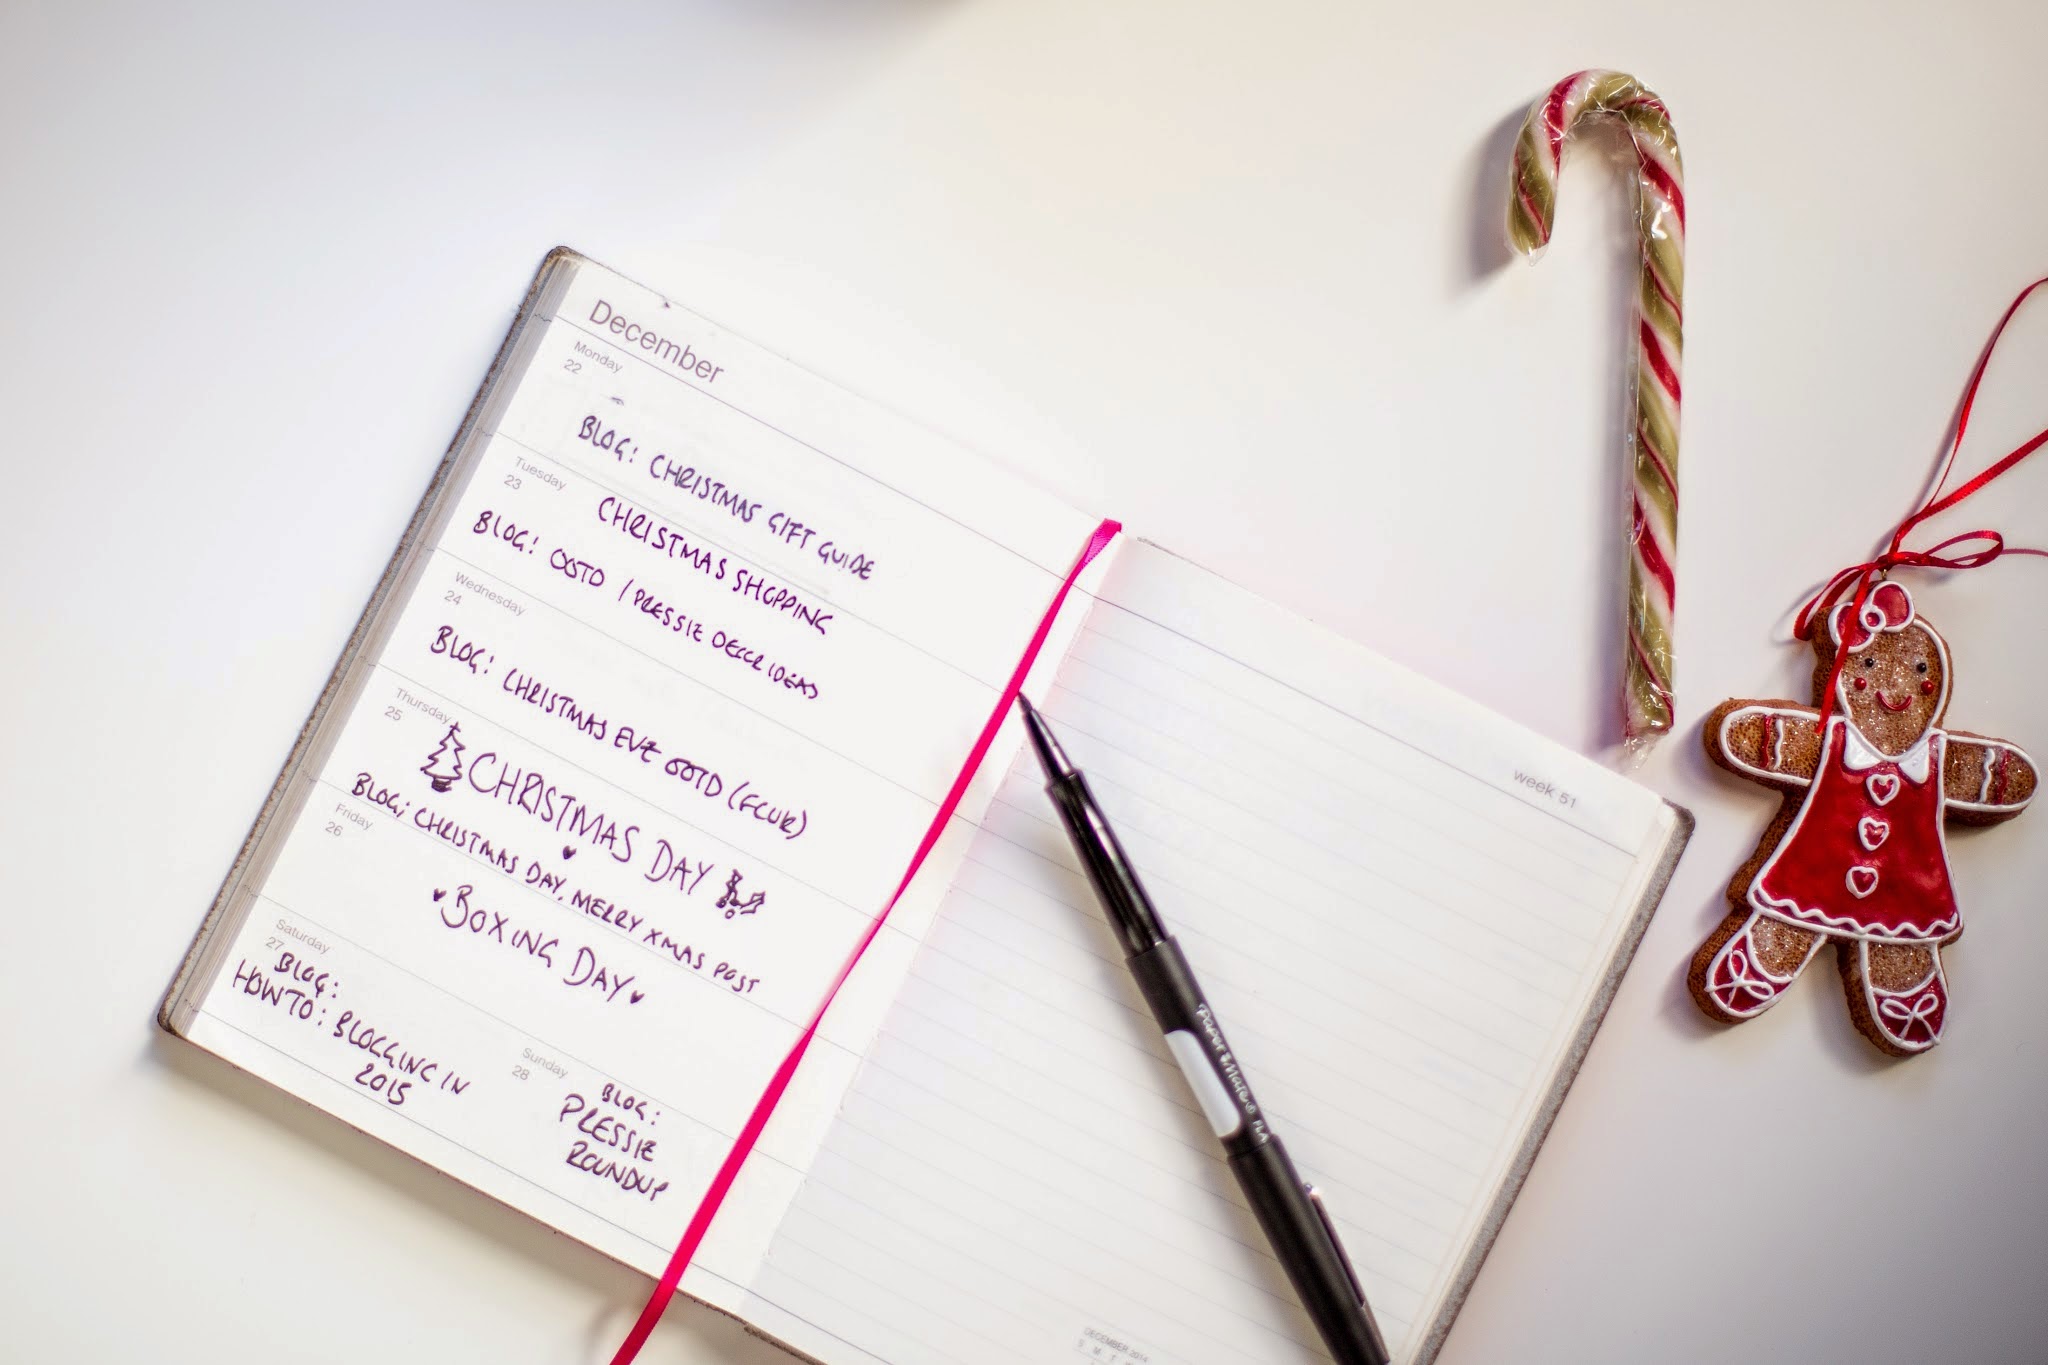 December
Monday
22
BLOG: CHRISTMAS GIFT GUIDE
Tuesday
23
CHRISTMAS SHOPPING
BLOG: OOTD / PRESSIE DECOR IDEAS
Wednesday
24
BLOG: CHRISTMAS EVE OOTD (FOUR)
Thursday
25
CHRISTMAS DAY
BLOG; CHRISTMAS DAY, MERRY XMAS POST
Friday
26
BOXING DAY
Saturday
27
BLOG:
HOW TO: BLOGGING IN
2015
Sunday
28
BLOG:
PRESSIE
ROUNDUP
week 51
Paper Mate® FLA
DECEMBER 2014
S M T